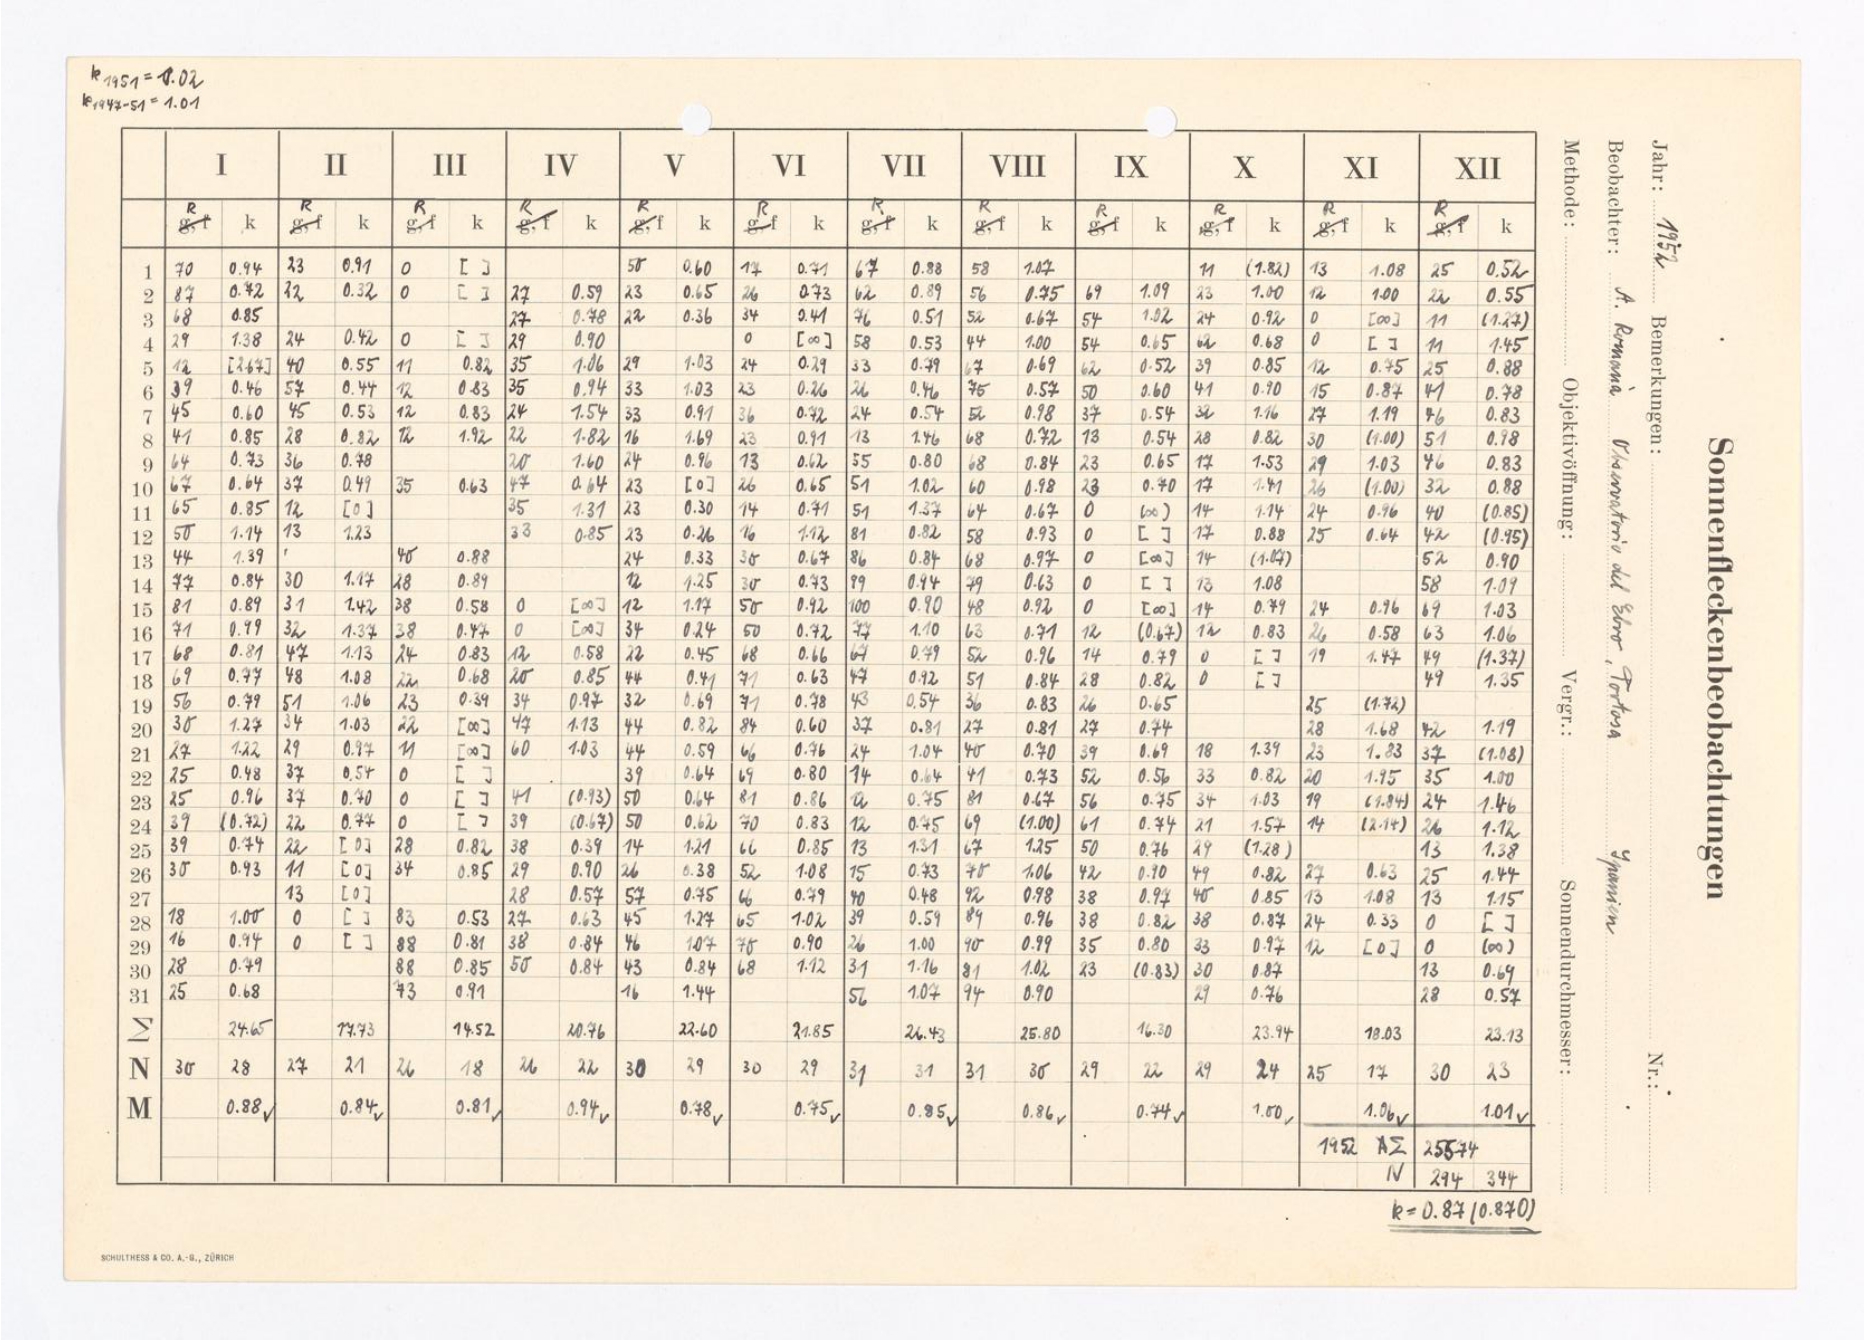 k 1951 = 1.02
k 1947-51 = 1.01
I II III IV V VI VII VIII IX X XI XII
R R R R R R R R R R R R
g, f k g, f k g, f k g, f k g, f k g, f k g, f k g, f k g, f k g, f k g, f k g, f k
1 70 0.94 23 0.91 0 [ ] 50 0.60 17 0.71 67 0.88 58 1.07 11 (1.82) 13 1.08 25 0.52
2 87 0.72 22 0.32 0 [ ] 27 0.59 23 0.65 26 0.73 62 0.89 56 0.75 69 1.09 23 1.00 12 1.00 22 0.55
3 68 0.85 27 0.78 22 0.36 34 0.41 76 0.51 52 0.67 54 1.02 24 0.92 0 [∞] 11 (1.27)
4 29 1.38 24 0.42 0 [ ] 29 0.90 0 [∞] 58 0.53 44 1.00 54 0.65 62 0.68 0 [ ] 11 1.45
5 12 [2.67] 40 0.55 11 0.82 35 1.06 29 1.03 24 0.29 33 0.79 67 0.69 62 0.52 39 0.85 12 0.75 25 0.88
6 39 0.46 57 0.44 12 0.83 35 0.94 33 1.03 23 0.26 26 0.46 75 0.57 50 0.60 41 0.90 15 0.87 41 0.78
7 45 0.60 45 0.53 12 0.83 24 1.54 33 0.91 36 0.72 24 0.54 52 0.98 37 0.54 32 1.16 27 1.19 46 0.83
8 41 0.85 28 0.82 12 1.92 22 1.82 16 1.69 23 0.91 13 1.46 68 0.72 13 0.54 28 0.82 30 (1.00) 51 0.98
9 64 0.73 36 0.78 20 1.60 24 0.96 13 0.62 55 0.80 68 0.84 23 0.65 17 1.53 29 1.03 46 0.83
10 67 0.64 37 0.49 35 0.63 47 0.64 23 [0] 26 0.65 51 1.02 60 0.98 23 0.70 17 1.41 26 (1.00) 32 0.88
11 65 0.85 12 [0] 35 1.31 23 0.30 14 0.71 51 1.37 64 0.67 0 (∞) 14 1.14 24 0.96 40 (0.85)
12 50 1.14 13 1.23 33 0.85 23 0.26 16 1.12 81 0.82 58 0.93 0 [ ] 17 0.88 25 0.64 42 (0.95)
13 44 1.39 40 0.88 24 0.33 30 0.67 86 0.84 68 0.97 0 [∞] 14 (1.07) 52 0.90
14 77 0.84 30 1.17 28 0.89 12 1.25 30 0.73 99 0.94 79 0.63 0 [ ] 13 1.08 58 1.09
15 81 0.89 31 1.42 38 0.58 0 [∞] 12 1.17 50 0.92 100 0.90 48 0.92 0 [∞] 14 0.79 24 0.96 69 1.03
16 71 0.99 32 1.37 38 0.47 0 [∞] 34 0.24 50 0.72 77 1.10 63 0.71 12 (0.67) 12 0.83 26 0.58 63 1.06
17 68 0.81 47 1.13 24 0.83 12 0.58 22 0.45 68 0.66 67 0.79 52 0.96 14 0.79 0 [ ] 19 1.47 49 (1.37)
18 69 0.77 48 1.08 22 0.68 20 0.85 44 0.41 71 0.63 47 0.92 51 0.84 28 0.82 0 [ ] 49 1.35
19 56 0.79 51 1.06 23 0.39 34 0.97 32 0.69 71 0.78 43 0.54 36 0.83 26 0.65 25 (1.72)
20 30 1.27 34 1.03 22 [∞] 47 1.13 44 0.82 84 0.60 37 0.81 27 0.81 27 0.74 28 1.68 42 1.19
21 27 1.22 29 0.97 11 [∞] 60 1.03 44 0.59 66 0.76 24 1.04 40 0.70 39 0.69 18 1.39 23 1.83 37 (1.08)
22 25 0.48 37 0.54 0 [ ] 39 0.64 69 0.80 14 0.64 41 0.73 52 0.56 33 0.82 20 1.95 35 1.00
23 25 0.96 37 0.70 0 [ ] 41 (0.93) 50 0.64 81 0.86 12 0.75 81 0.67 56 0.75 34 1.03 19 (1.84) 24 1.46
24 39 (0.72) 22 0.77 0 [ ] 39 (0.67) 50 0.62 70 0.83 12 0.75 69 (1.00) 61 0.74 21 1.57 14 (2.14) 26 1.12
25 39 0.74 22 [0] 28 0.82 38 0.39 14 1.21 66 0.85 13 1.31 67 1.25 50 0.76 29 (1.28) 13 1.38
26 30 0.93 11 [0] 34 0.85 29 0.90 26 0.38 52 1.08 15 0.73 70 1.06 42 0.90 49 0.82 27 0.63 25 1.44
27 13 [0] 28 0.57 57 0.75 66 0.79 40 0.48 92 0.98 38 0.97 40 0.85 13 1.08 13 1.15
28 18 1.00 0 [ ] 83 0.53 27 0.63 45 1.27 65 1.02 39 0.59 89 0.96 38 0.82 38 0.87 24 0.33 0 [ ]
29 16 0.94 0 [ ] 88 0.81 38 0.84 46 1.07 70 0.90 26 1.00 90 0.99 35 0.80 33 0.97 12 [0] 0 (∞)
30 28 0.79 88 0.85 50 0.84 43 0.84 68 1.12 31 1.16 81 1.02 23 (0.83) 30 0.87 13 0.69
31 25 0.68 73 0.91 16 1.44 56 1.07 94 0.90 29 0.76 28 0.57
Σ 24.65 17.73 14.52 20.76 22.60 21.85 26.43 25.80 16.30 23.94 18.03 23.13
N 30 28 27 21 26 18 26 22 30 29 30 29 31 31 31 30 29 22 29 24 25 17 30 23
M 0.88 ✓ 0.84 ✓ 0.81 ✓ 0.94 ✓ 0.78 ✓ 0.75 ✓ 0.85 ✓ 0.86 ✓ 0.74 ✓ 1.00 ✓ 1.06 ✓ 1.01 ✓
1952 AΣ 25574
N 294 344
k = 0.87 (0.870)
SCHULTHESS & CO. A.-G., ZÜRICH
Sonnenfleckenbeobachtungen
Jahr: 1952 Bemerkungen: Nr.:
Beobachter: A. Romaña Observatorio del Ebro, Tortosa Spanien
Methode: Objektivöffnung: Vergr.: Sonnendurchmesser: